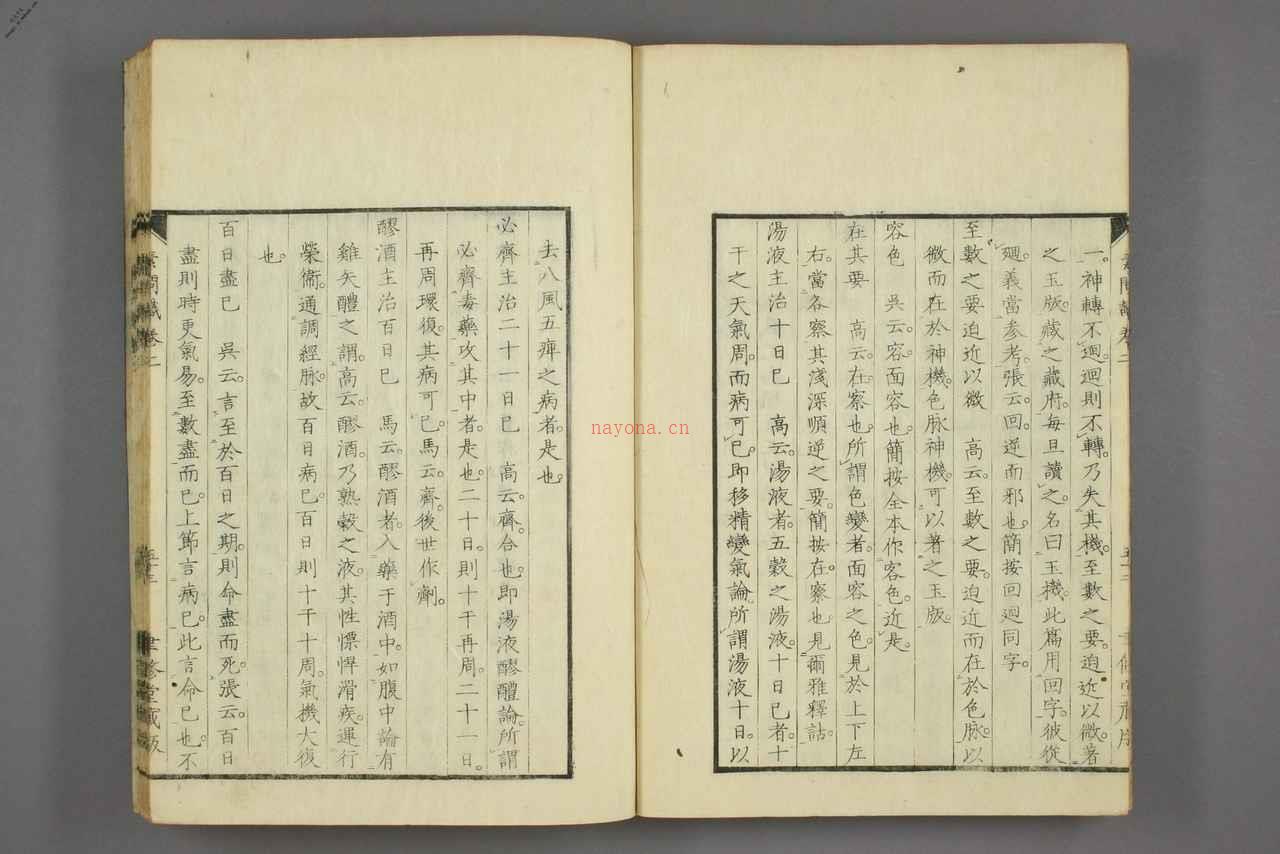 一。神轉不迴。迴則不轉。乃失其機。至數之要。迫近以微。著
之玉版。藏之藏府。每旦讀之。名曰玉機。此篇用回字。彼從
迴。義當參考。張云。回。逆而邪也。簡按回迴同字。
至數之要迫近以微　高云。至數之要。迫近而在於色脉。以
微而在於神機。色脉神機。可以著之玉版。
容色　吳云。容。面容也。簡按全本作客色。近是。
在其要　高云。在。察也。所謂色變者。面容之色。見於上下左
右。當各察其淺深順逆之要。簡按在。察也。見爾雅釋詁。
湯液主治十日已　高云。湯液者。五穀之湯液。十日已者。十
干之天氣周。而病可已。即移精變氣論所謂湯液十日。以
去八風五痹之病者是也。
必齊主治二十一日已　高云。齊。合也。即湯液醪醴論。所謂
必齊毒藥攻其中者。是也。二十日。則十干再周。二十一日。
再周環復。其病可已。馬云。齊。後世作劑。
醪酒主治百日已　馬云。醪酒者。入藥于酒中。如腹中論有
雞矢醴之謂。高云。醪酒。乃熟穀之液。其性慓悍滑疾。運行
榮衛。通調經脉。故百日病已。百日則十干十周。氣機大復
也。
百日盡已　吳云。言至於百日之期。則命盡而死。張云。百日
盡則時更氣易。至數盡而已。上節言病已。此言命已也。不
素問識卷二
五十三
聿修堂藏版
nayona.cn